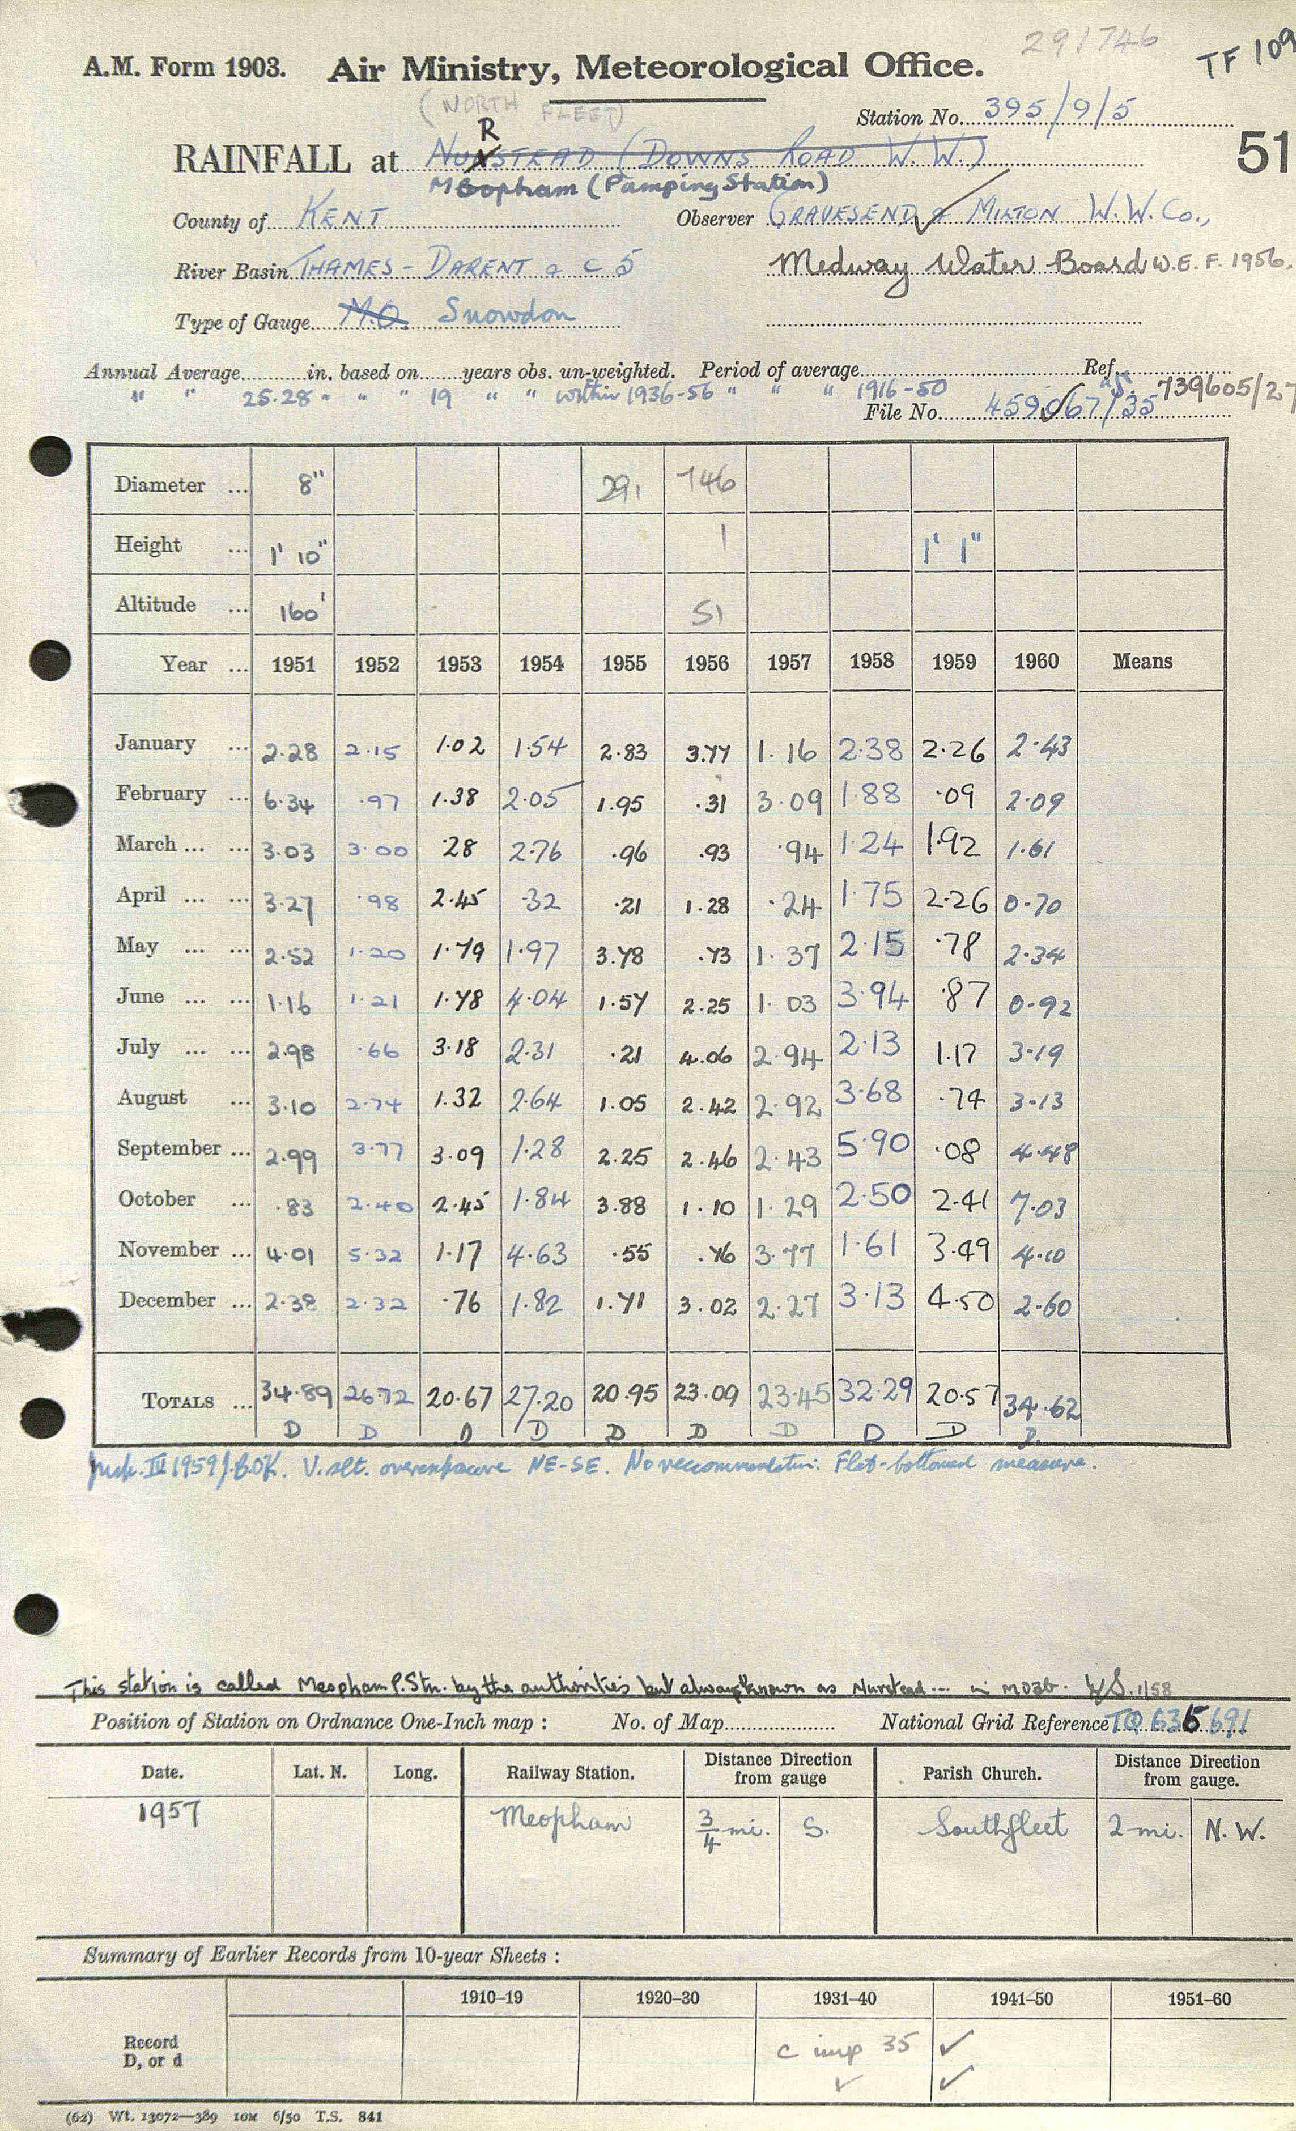 291746
TF 109
A.M. Form 1903. Air Ministry, Meteorological Office.
(NORTH FLEET)
Station No. 395/9/5
R
RAINFALL at NUNSTEAD (DOWNS ROAD W.W.)
51
Meopham (Pumping Station)
County of KENT Observer GRAVESEND & MILTON W.W.Co.,
River Basin THAMES - DARENT a c 5 Medway Water Board W.E.F. 1956.
Type of Gauge M.O. Snowdon
Annual Average in. based on years obs. un-weighted. Period of average Ref.
" " 25.28 " " " 19 " " within 1936-56 " " " 1916-50
File No. 459067/35 739605/27
Diameter ... 8" 291 746
Height ... 1' 10" 1 1' 1"
Altitude ... 160' 51
Year ... 1951 1952 1953 1954 1955 1956 1957 1958 1959 1960 Means
January ... 2.28 2.15 1.02 1.54 2.83 3.77 1.16 2.38 2.26 2.43
February ... 6.34 .97 1.38 2.05 1.95 .31 3.09 1.88 .09 2.09
March ... ... 3.03 3.00 .28 2.76 .96 .93 .94 1.24 1.92 1.61
April ... ... 3.27 .98 2.45 .32 .21 1.28 .24 1.75 2.26 0.70
May ... ... 2.52 1.20 1.79 1.97 3.78 .73 1.37 2.15 .78 2.34
June ... ... 1.16 1.21 1.78 4.04 1.57 2.25 1.03 3.94 .87 0.92
July ... ... 2.98 .66 3.18 2.31 .21 4.06 2.94 2.13 1.17 3.19
August ... 3.10 2.74 1.32 2.64 1.05 2.42 2.92 3.68 .74 3.13
September ... 2.99 3.77 3.09 1.28 2.25 2.46 2.43 5.90 .08 4.48
October ... .83 2.40 2.45 1.84 3.88 1.10 1.29 2.50 2.41 7.03
November ... 4.01 5.32 1.17 4.63 .55 .76 3.77 1.61 3.49 4.10
December ... 2.38 2.32 .76 1.82 1.71 3.02 2.27 3.13 4.50 2.60
TOTALS ... 34.89 26.72 20.67 27.20 20.95 23.09 23.45 32.29 20.57 34.62
D D D D D D D D D D
III 1959 V. slt. overexposure NE-SE. No recommendation. Flat-bottomed measure.
This station is called Meopham P. Stn. by the authorities but always known as Nurstead ... in M.O.36. 1/58
Position of Station on Ordnance One-Inch map : No. of Map National Grid Reference TQ 636 691
Date. Lat. N. Long. Railway Station. Distance Direction from gauge Parish Church. Distance Direction from gauge.
1957 Meopham 3/4 mi. S. Southfleet 2 mi. N.W.
Summary of Earlier Records from 10-year Sheets :
1910–19 1920–30 1931–40 1941–50 1951–60
Record D, or d c imp 35 ✓
✓ ✓
(62) Wt. 13072—389 10M 6/50 T.S. 841